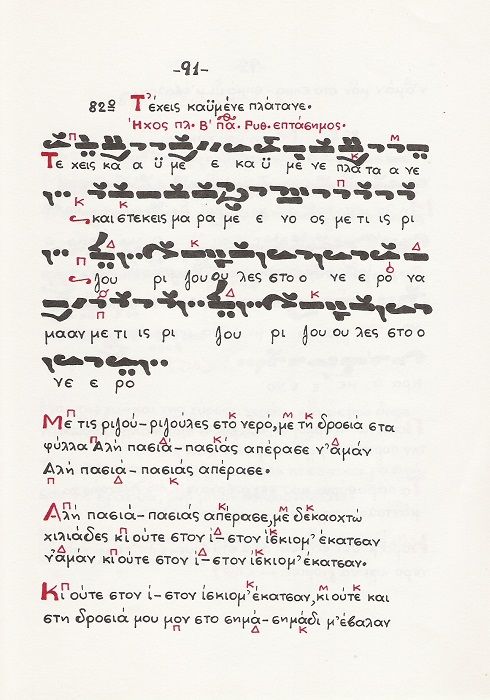 -91-
82ο Τ' έχεις καϋμένε πλάτανε.
Ήχος πλ. Β' πα. Ρυθ. επτάσημος.
Τε χεις κα α ϋ με ε κα ϋ με νε πλα τα α νε
και στεκεις μα ρα με ε νο ος με τι ις ρι
ζου ρι ζου ου λες στο ο νε ε ρο να
μα αν με τι ις ρι ζου ρι ζου ου λες στο ο
νε ε ρο
Με τις ριζού-ριζούλες στο νερό, με τη δροσιά στα
φύλλα Αλή πασιά-πασιάς απέρασε ν' αμάν
Αλή πασιά-πασιάς απέρασε.
Αλή πασιά-πασιάς απέρασε, με δεκαοχτώ
χιλιάδες κι ούτε στον ί-στον ίσκιο μ' έκατσαν
ν' αμάν κι ούτε στον ί-στον ίσκιο μ' έκατσαν.
Κι ούτε στον ί-στον ίσκιο μ' έκατσαν, κι ούτε και
στη δροσιά μου μον στο σημά-σημάδι μ' έβαλαν